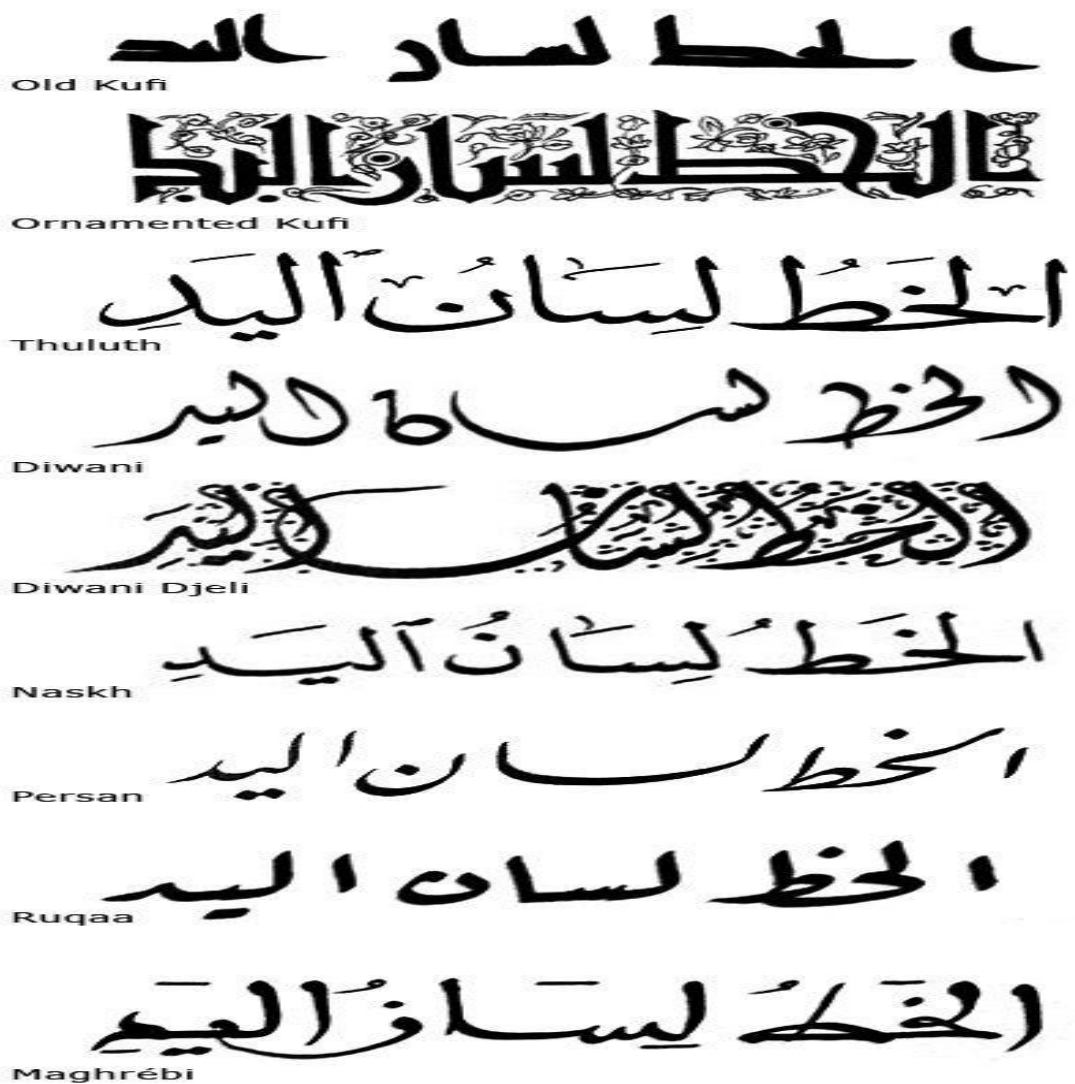 الخط لسان اليد
Old Kufi
الخط لسان اليد
Ornamented Kufi
الخَطُ لِسَانُ اليَدِ
Thuluth
الخط لسان اليد
Diwani
الخط لسان اليد
Diwani Djeli
الخَطُ لِسَانُ اليَدِ
Naskh
الخط لسان اليد
Persan
الخط لسان اليد
Ruqaa
الخَطُ لِسَانُ اليَدِ
Maghrébi